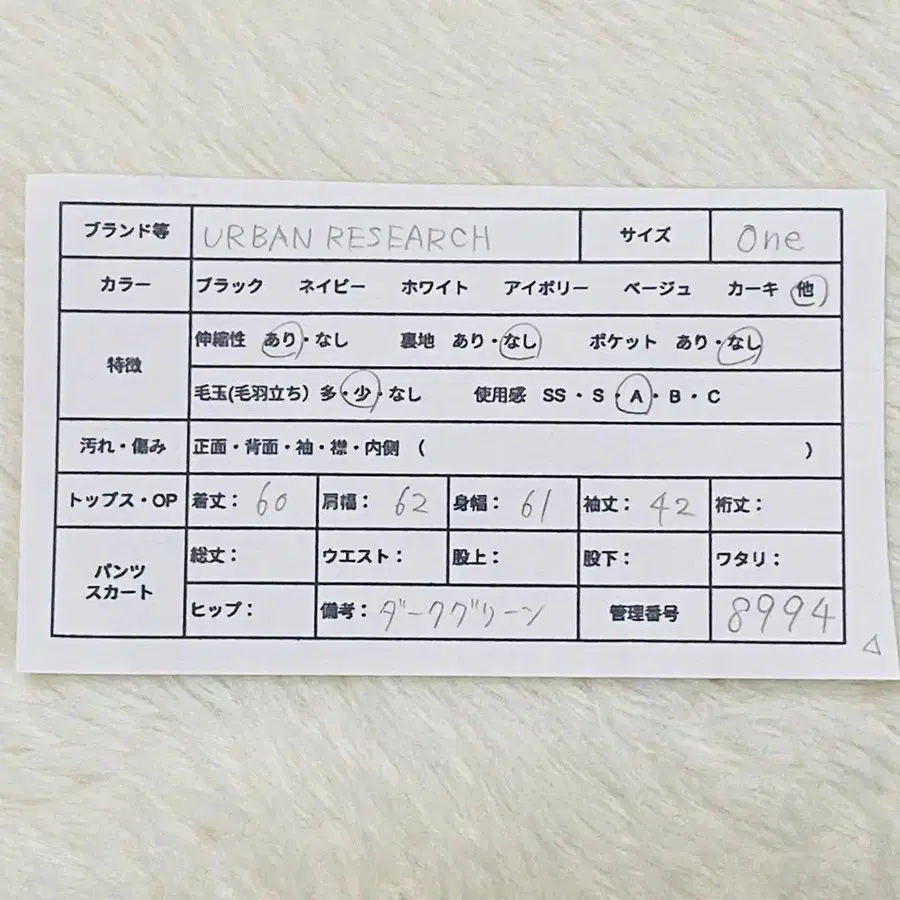 ブランド等 URBAN RESEARCH サイズ One
カラー ブラック ネイビー ホワイト アイボリー ベージュ カーキ 他
特徴
伸縮性 あり・なし 裏地 あり・なし ポケット あり・なし
毛玉(毛羽立ち) 多・少・なし 使用感 SS・S・A・B・C
汚れ・傷み 正面・背面・袖・襟・内側 ( )
トップス・OP 着丈: 60 肩幅: 62 身幅: 61 袖丈: 42 裄丈:
パンツ
スカート
総丈: ウエスト: 股上: 股下: ワタリ:
ヒップ: 備考: ダークグリーン 管理番号 8994